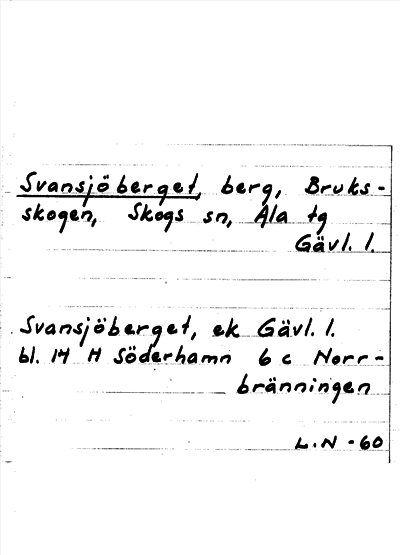 Svansjöberget, berg, Bruks-
skogen, Skogs sn, Ala tg
Gävl. l.
Svansjöberget, ek Gävl. l.
bl. 14 H Söderhamn 6 c Norr-
bränningen
L.N -60